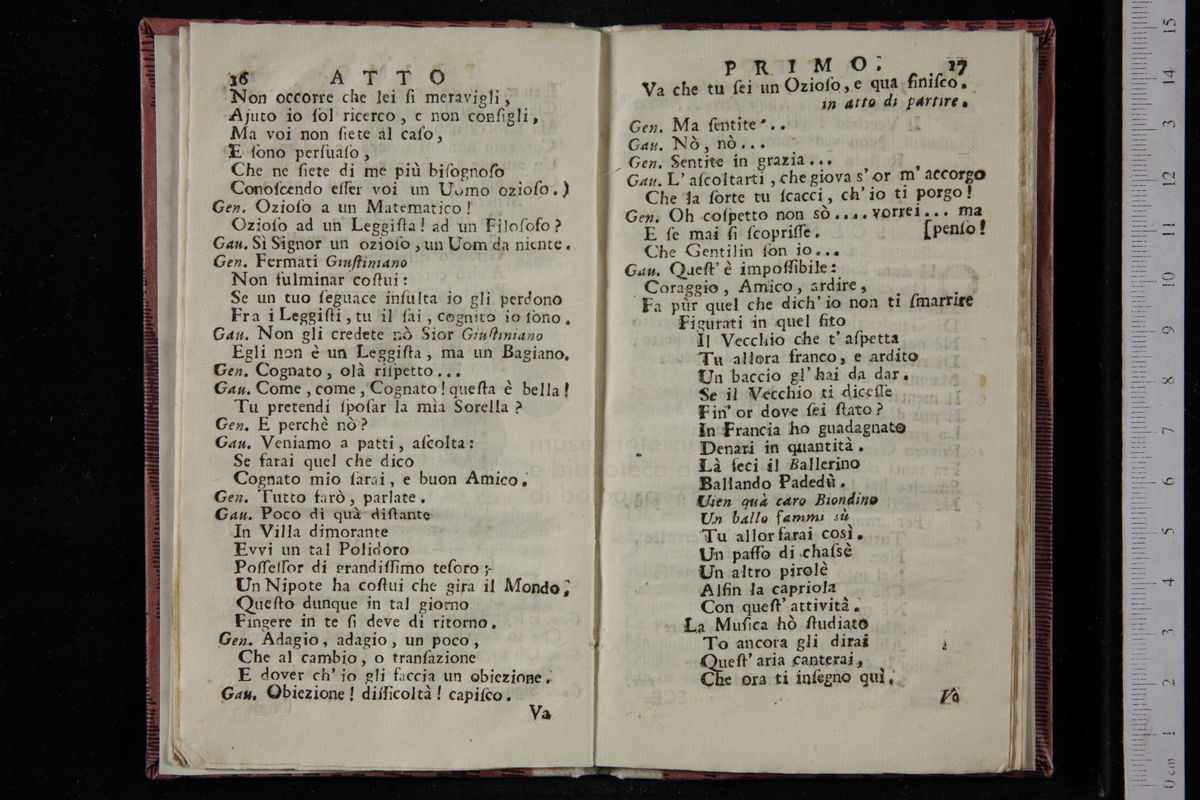 16 ATTO
Non occorre che lei ſi meravigli,
Ajuto io ſol ricerco, e non conſigli,
Ma voi non ſiete al caſo,
E ſono perſuaſo,
Che ne ſiete di me più biſognoſo
Conoſcendo eſſer voi un Uomo ozioſo.)
Gen. Ozioſo a un Matematico!
Ozioſo ad un Leggiſta! ad un Filoſofo?
Gau. Sì Signor un ozioſo, un Uom da niente.
Gen. Fermati Giuſtiniano
Non fulminar coſtui:
Se un tuo ſeguace inſulta io gli perdono
Fra i Leggiſti, tu il ſai, cognito io ſono.
Gau. Non gli credete nò Sior Giuſtiniano
Egli non è un Leggiſta, ma un Bagiano.
Gen. Cognato, olà riſpetto...
Gau. Come, come, Cognato! queſta è bella!
Tu pretendi ſpoſar la mia Sorella?
Gen. E perchè nò?
Gau. Veniamo a patti, aſcolta:
Se farai quel che dico
Cognato mio ſarai, e buon Amico.
Gen. Tutto farò, parlate.
Gau. Poco di quà diſtante
In Villa dimorante
Evvi un tal Polidoro
Poſſeſſor di grandiſſimo teſoro;
Un Nipote ha coſtui che gira il Mondo;
Queſto dunque in tal giorno
Fingere in te ſi deve di ritorno.
Gen. Adagio, adagio, un poco,
Che al cambio, o tranſazione
E dover ch' io gli faccia un obiezione.
Gau. Obiezione! difficoltà! capiſco.
Va
PRIMO. 17
Va che tu ſei un Ozioſo, e qua finiſco.
in atto di partire.
Gen. Ma ſentite...
Gau. Nò, nò...
Gen. Sentite in grazia...
Gau. L' aſcoltarti, che giova s' or m' accorgo
Che la ſorte tu ſcacci, ch' io ti porgo!
Gen. Oh coſpetto non sò.... vorrei... ma
E ſe mai ſi ſcopriſſe. [penſo!
Che Gentilin ſon io...
Gau. Queſt' è impoſſibile:
Coraggio, Amico, ardire,
Fa pùr quel che dich' io non ti ſmarrire
Figurati in quel ſito
Il Vecchio che t' aſpetta
Tu allora franco, e ardito
Un baccio gl' hai da dar.
Se il Vecchio ti diceſſe
Fin' or dove ſei ſtato?
In Francia ho guadagnato
Denari in quantità.
Là feci il Ballerino
Ballando Padedù.
Uien quà caro Biondino
Un ballo fammi sù
Tu allor farai così.
Un paſſo di chaſsè
Un altro pirolè
Alfin la capriola
Con queſt' attività.
La Muſica hò ſtudiato
To ancora gli dirai
Queſt' aria canterai,
Che ora ti inſegno quì.
Va
museo internazionale
e biblioteca della
di bologna
15
14
13
12
11
10
9
8
7
6
5
4
3
2
1
0 cm